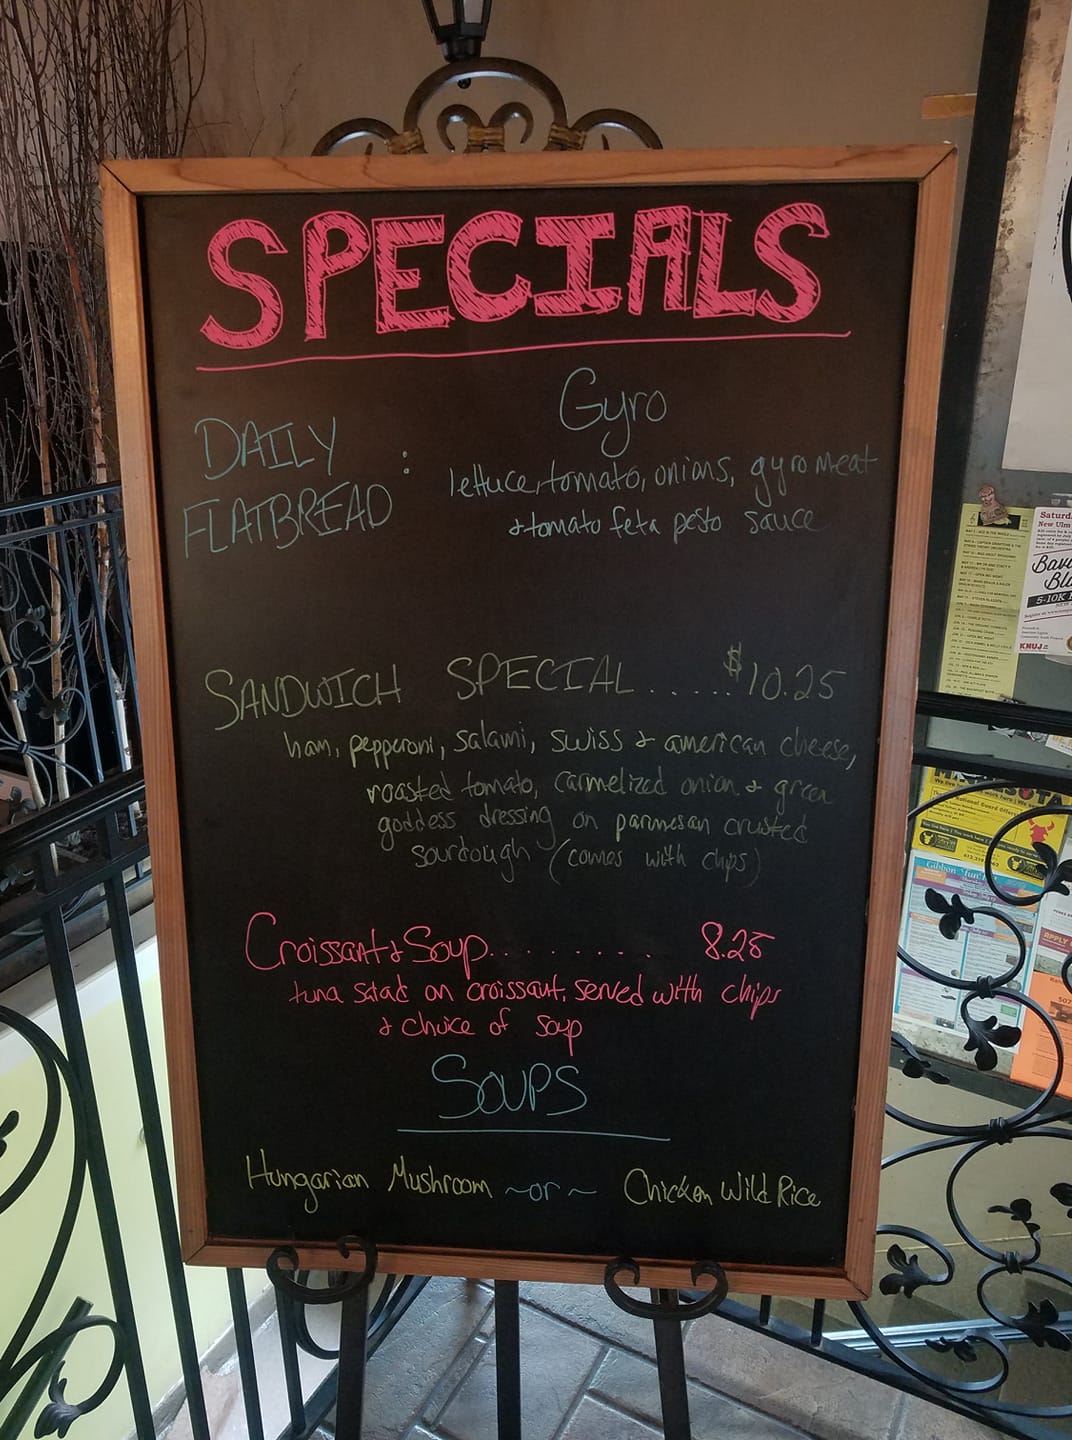 SPECIALS
DAILY FLATBREAD :
Gyro
lettuce, tomato, onions, gyro meat
& tomato feta pesto sauce
SANDWICH SPECIAL......$10.25
ham, pepperoni, salami, swiss & american cheese,
roasted tomato, carmelized onion & green
goddess dressing on parmesan crusted
sourdough (comes with chips)
Croissant & Soup......... 8.25
tuna salad on croissant, served with chips
& choice of soup
SOUPS
Hungarian Mushroom ~or~ Chicken Wild Rice
Saturd
New Ulm
Bava
Bla
5-10K
KNUJ
MINNESOTA
National Guard
Gibbon 'fun'
APPLY
507